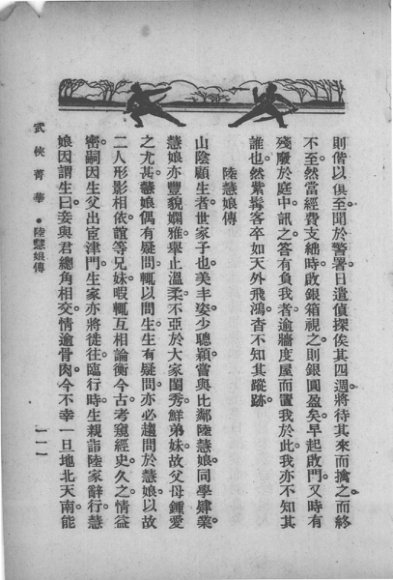 則偕以俱。至聞於警署。日遣偵探俟其四週。將待其來而擒之。而終
不至。然當經費支絀時。啟銀箱視之。則銀圓盈矣。早起啟門。又時有
殘廢於庭中。訊之。答有負我者。逾牆度屋而置我於此。我亦不知其
誰也。然紫髯客卒如天外飛鴻。杳不知其蹤跡。
陸慧娘傳
山陰顧生者。世家子也。美丰姿。少聰穎。嘗與比鄰陸慧娘。同學肄業。
慧娘亦豐貌嫻雅。舉止溫柔。不亞於大家閨秀。鮮弟妹。故父母鍾愛
之尤甚。慧娘偶有疑問。輒以問生。生有疑問。亦必趨問於慧娘。以故
二人形影相依。誼等兄妹。暇輒互相論衡今古。考窺經史。久之。情益
密。嗣因生父出宦津門。生家亦將徙往。臨行時。生親詣陸家辭行。慧
娘因謂生曰。妾與君總角相交。情逾骨肉。今不幸一旦地北天南。能
武俠菁華・陸慧娘傳
一一一